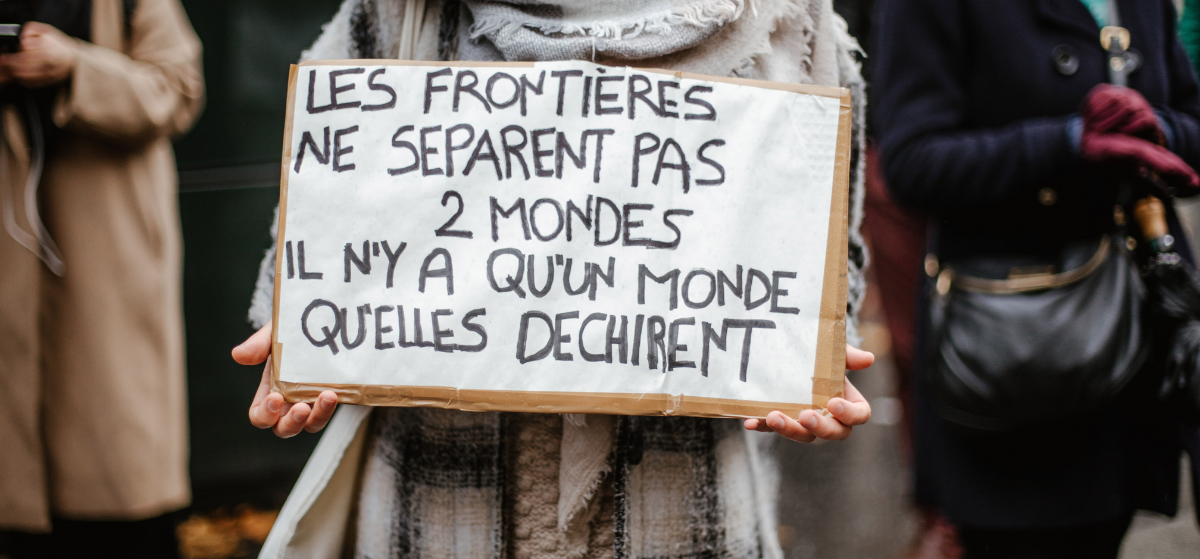 LES FRONTIÈRES
NE SEPARENT PAS
2 MONDES
IL N'Y A QU'UN MONDE
QU'ELLES DECHIRENT